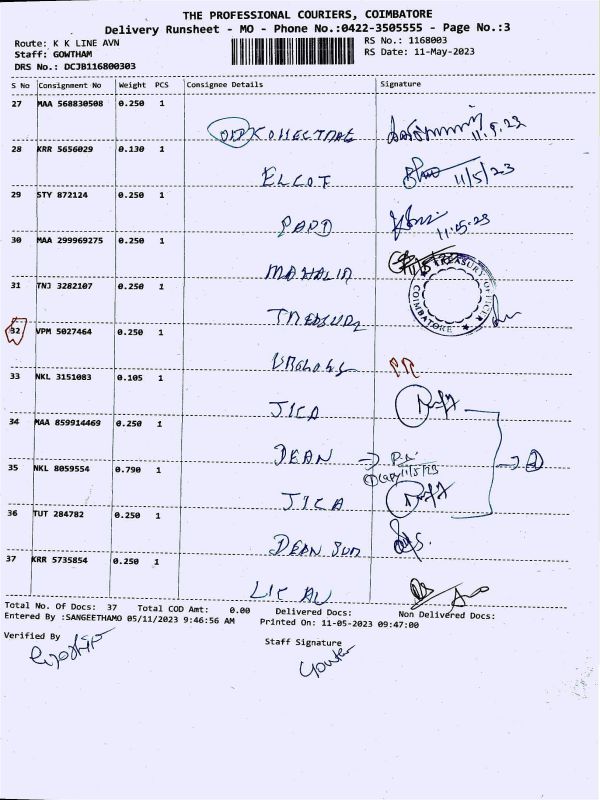 THE PROFESSIONAL COURIERS, COIMBATORE
Delivery Runsheet - MO - Phone No.:0422-3505555 - Page No.:3
Route: K K LINE AVN
RS No.: 1168003
Staff: GOWTHAM
RS Date: 11-May-2023
DRS No.: DCJB116800303
S No Consignment No Weight PCS Consignee Details Signature
27 MAA 568830508 0.250 1
11.5.23
28 KRR 5656029 0.130 1
ELCOT
11/5/23
29 STY 872124 0.250 1
11.05.23
30 MAA 299969275 0.250 1
11/5/23
TREASURY OFFICER
COIMBATORE
31 TNJ 3282107 0.250 1
32 VPM 5027464 0.250 1
33 NKL 3151083 0.105 1
JICA
34 MAA 859914469 0.250 1
DEAN
11/5/23
35 NKL 8059554 0.790 1
JICA
36 TUT 284782 0.250 1
DEAN
37 KRR 5735854 0.250 1
LIC
Total No. Of Docs: 37 Total COD Amt: 0.00 Delivered Docs: Non Delivered Docs:
Entered By :SANGEETHAMO 05/11/2023 9:46:56 AM Printed On: 11-05-2023 09:47:00
Verified By
Staff Signature